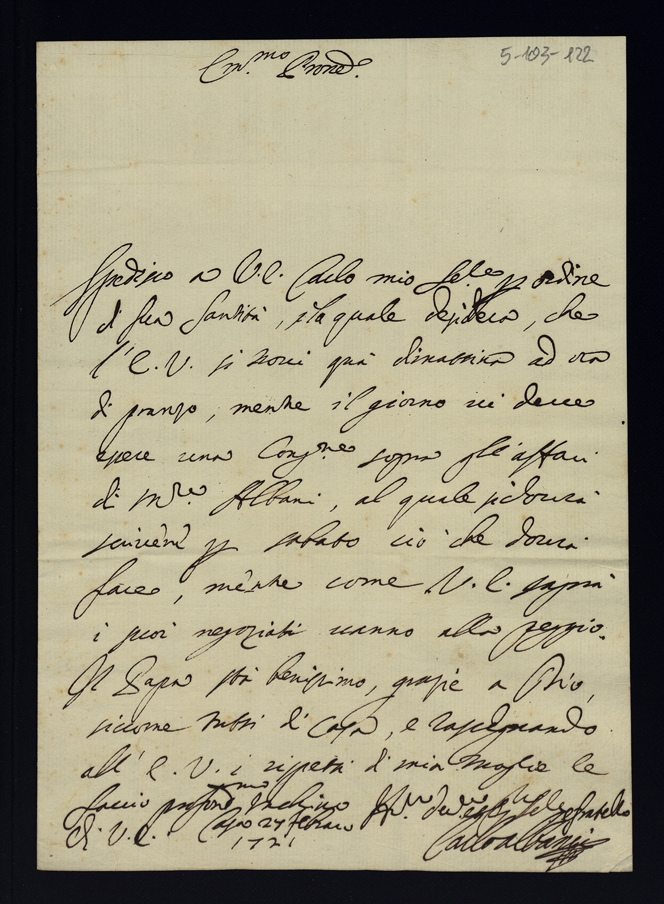 5-103-122
Em.mo Pron.e
Spedisco a V.E. Carlo mio ordine
di Sua Santità, la quale desidera, che
l'E.V. si trovi quà dimattina ad ora
di pranzo, mentre il giorno vi deve
essere una Cong.ne sopra gli affari
di M.re Albani, al quale si dovrà
scrivere p sabato ciò che dovrà
fare, mentre come V.E. saprà
i suoi negoziati vanno alla peggio.
Il Papa stà benissimo, grazie a Dio,
siccome tutti di Casa, e rassegnando
all'E.V. i rispetti di mia Moglie le
faccio profond.mo Inchino fratello
di V.E. Casa 27 febraro
1721 Carlo Albani